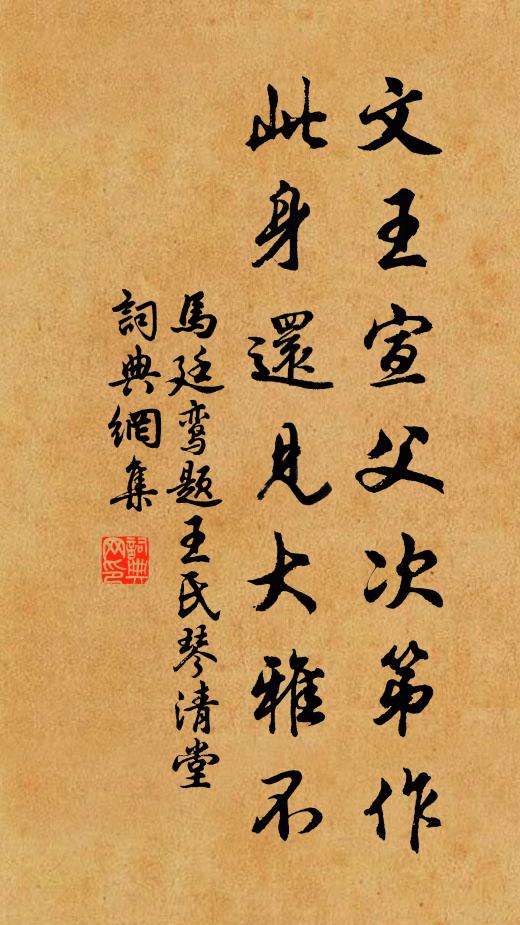 文王宣父次第作
此身還見大雅不
馬廷鸾题王氏琴清堂
詞典網集
詞典网印